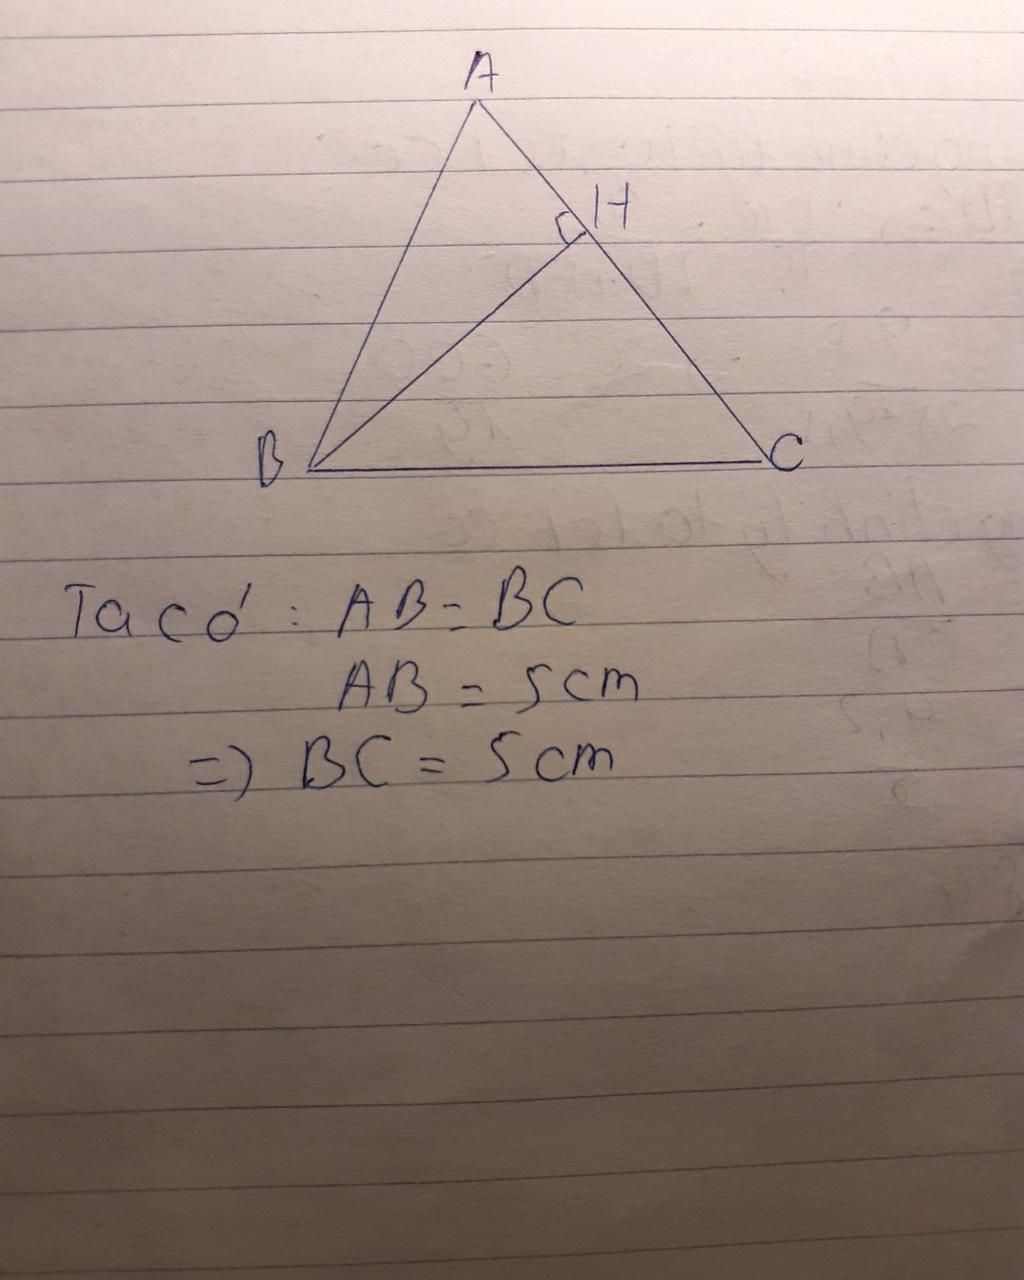 A
H
B
C
Ta có : AB = BC
AB = 5 cm
=) BC = 5 cm